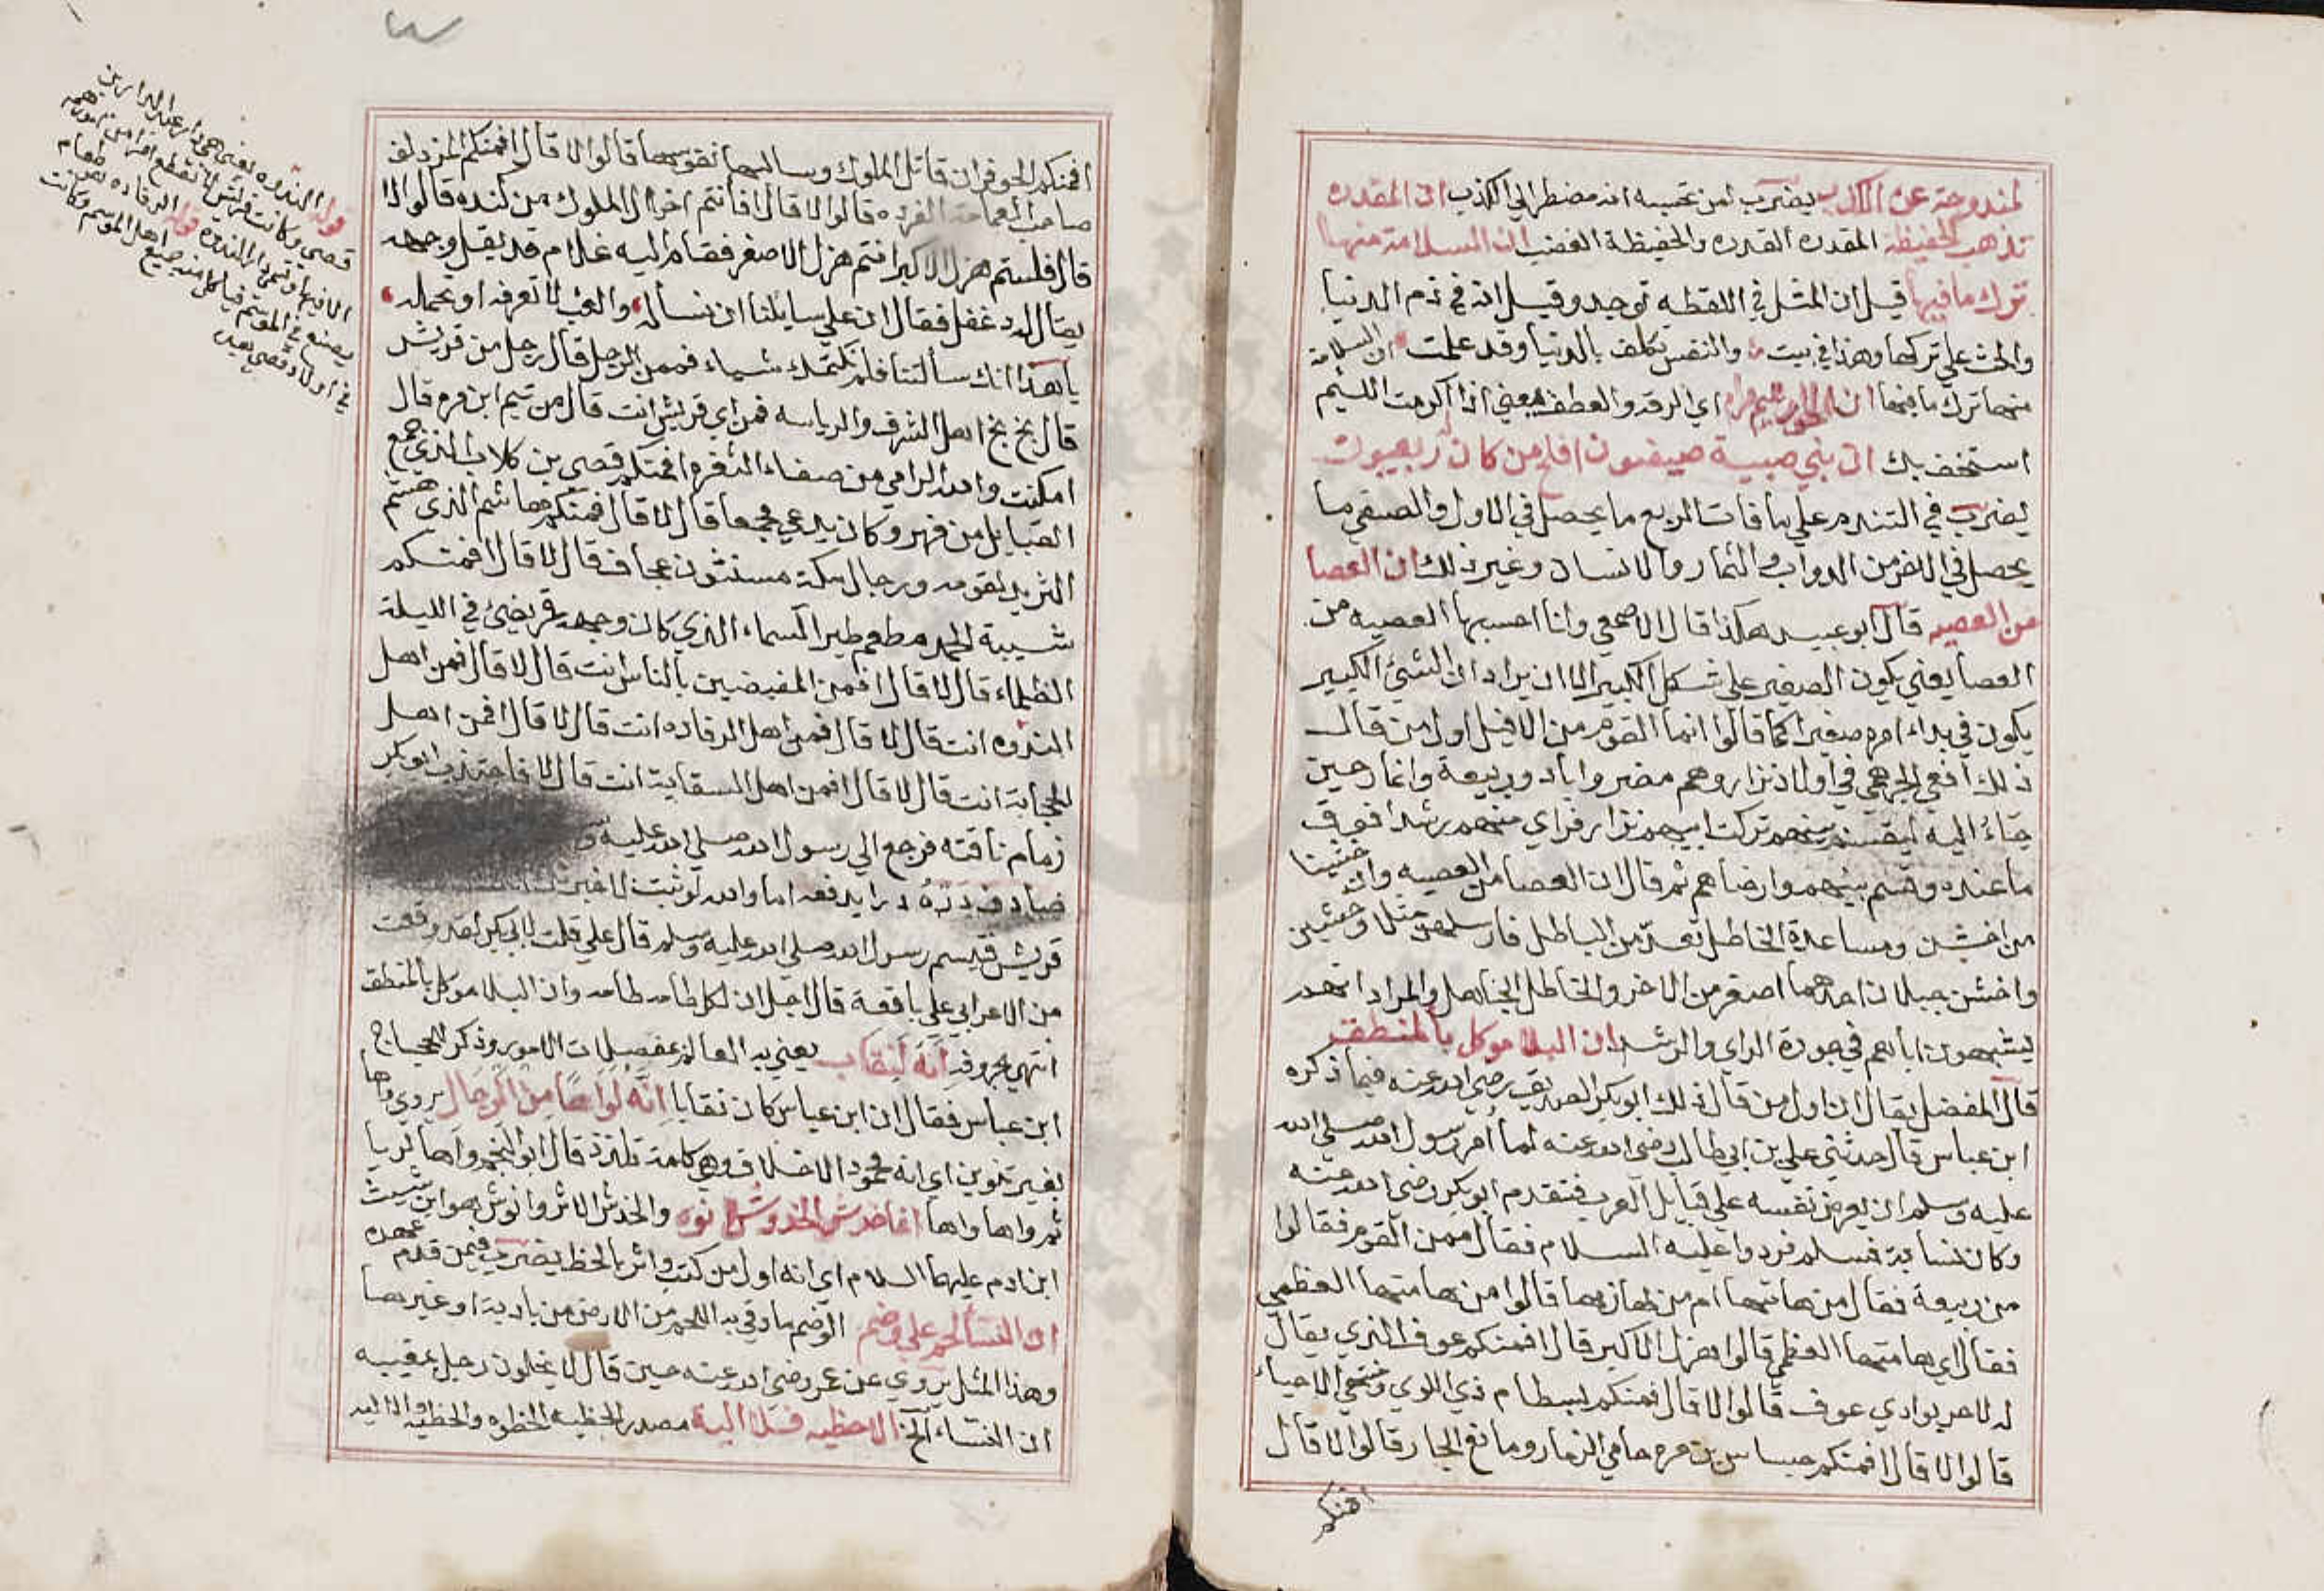 لمندوحة عن الكذب يضرب لمن تحسبه انه مضطر الي الكذب ان المقدره
تذهب الحفيظة المقدره القدره والحفيظة الغضب ان السلامة منها
ترك ما فيها قيل ان المثل في اللقطه توجد وقيل انه في ذم الدنيا
والحث علي تركها وهذا في بيت والنفس تكلف بالدنيا وقد علمت ان السلامة
منها ترك ما فيها ان اي الرقه والعطف يعني اذا اكرمت اللئيم
استخف بك ان بني صبية صيفيون افلح من كان له ربعيون
يضرب في التندم علي ما فات الربع ما يحصل في الاول والصيفي ما
يحصل في الاخر من الدواب والثمار والانسان وغير ذلك ان العصا
من العصيه قال ابو عبيد هكذا قال الاصمعي وانا احسبها العصيه من
العصا يعني يكون الصغير علي شكل الكبير الا ان يراد ان الشئ الكبير
يكون في بداء امره صغيرا كما قالوا انما القوم من الافيل اول من قال
ذلك افعي الجرهمي في اولاد نزار وهم مضر واياد وربيعة وانمار حين
جاءُ اليه ليقسم بينهم تركت ابيهم نزار فراي منهم رشدا فعرف
ما عنده وقسم بينهم وارضاهم ثم قال ان العصا من العصيه وان خشينا
من اخشن ومساعدة الخاطل تعد من الباطل فارسلهن مثلا وخشين
واخشن جبلان احدهما اصغر من الاخر والخاطل الجاهل والمراد انهم
يشبهون اباهم في جودة الراي والرشد ان البلا موكل بالمنطق
قال المفضل يقال ان اول من قال ذلك ابو بكر الصديق رضي الله عنه فيما ذكره
ابن عباس قال حدثني علي بن ابي طالب رضي الله عنه لما امر رسول الله صلي الله
عليه وسلم ان يعرض نفسه علي قبايل العرب فتقدم ابو بكر رضي الله عنه
وكان نسابة فسلم فردوا عليه السلام فقال ممن القوم فقالوا
من ربيعة فقال من هامتها ام من لهازمها قالوا من هامتها العظمي
فقال اي هامتها العظمي قالوا ذهل الاكبر قال افمنكم عوف الذي يقال
له لا حر بوادي عوف قالوا لا قال افمنكم بسطام ذي اللوي ومنتهي الاحياء
قالوا لا قال افمنكم جساس بن مره حامي الذمار ومانع الجار قالوا لا قال
افمنكم
افمنكم الحوفزان قاتل الملوك وسالبها نفوسها قالوا لا قال افمنكم المزدلف
صاحب العمامة الفرده قالوا لا قال فانتم اخوال الملوك من كنده قالوا لا
قال فلستم هزل الاكبر انتم هزل الاصغر فقام اليه غلام قد بقل وجهه
يقال له دغفل فقال ان علي سايلنا ان نساله والعبء لا تعرفه او تحمله
يا هذا انك سالتنا فلم نكتمك شياء فممن الرجل قال رجل من قريش
قال بخ بخ اهل الشرف والرياسه فمن اي قريش انت قال من تيم ابن مره قال
امكنت والله الرامي من صفاء الثغره افمنكم قصي بن كلاب الذي جمع
القبايل من فهر وكان يدعي مجمعا قال لا قال افمنكم هاشم الذي هشم
الثريد لقومه ورجال مكة مسنتون عجاف قال لا قال افمنكم
شيبة الحمد مطعم طير السماء الذي كان وجهه قمر يضئ في الليلة
الظلماء قال لا قال افمن المفيضين بالناس انت قال لا قال فمن اهل
الندوه انت قال لا قال فمن اهل الرفاده انت قال لا قال افمن اهل
الحجابة انت قال لا قال افمن اهل السقاية انت قال لا فاجتذب ابو بكر
زمام ناقته فرجع الي رسول الله صلي الله عليه
صادف دره درا يدفعه اما والله لو ثبت
قريش فتبسم رسول الله صلي الله عليه وسلم قال علي قلت لابي بكر لقد وقعت
من الاعرابي علي باقعة قال اجل ان لكل طامه طامه وان البلا موكل بالمنطق
انتهي بحروفه انه لنقاب يعني به العالم بمعضلات الامور وذكر الحجاج
ابن عباس فقال ان ابن عباس كان نقابا انه لواها من الرجال يروي واها
بغير تنوين اي انه محمود الاخلاق وهي كلمة تلذذ قال ابو النجم واها لريا
ثم واها واها انما خدش الخدوش انوه والخدش الاثر وانوش هو ابن شيث
ابن ادم عليهما السلام اي انه اول من كتب واثر بالخط يضرب فيمن قدم عهده
ان النسا لحم علي وضم الوضم ما وقي به اللحم من الارض من بادية او غيرها
وهذا المثل يروي عن عمر رضي الله عنه حين قال لا يخلون رجل بمغيبه
ان النساء الخ الا حظيه فلا الية مصدر الحظيه الحظوه والحظيه والاليه
قوله الندوه يعني هي دار
قصي وكانت قريش لا تقطع امرا من امورهم
الا فيها وتسمي دار الندوه قوله الرفاده هو طعام
يصنع في الموسم فياكل منه جميع اهل الموسم وكانت
في اولاد قصي بعده